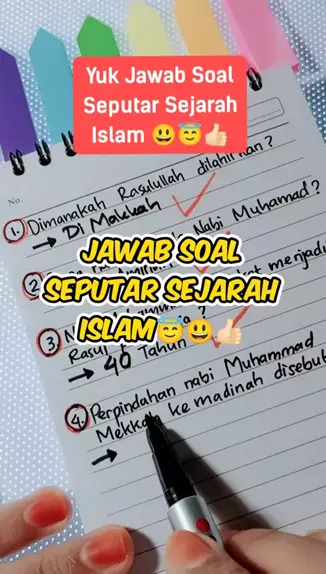 Yuk Jawab Soal
Seputar Sejarah
Islam 😃😇👍🏻
No.
1. Dimanakah Rasulullah dilahirkan?
→ Di Makkah
JAWAB SOAL
SEPUTAR SEJARAH
ISLAM😇😃👍🏻
2. Nabi Muhamad?
3. menjadi
Rasul
→ 40 Tahun
4. Perpindahan nabi Muhammad
Mekkah ke madinah disebut
→